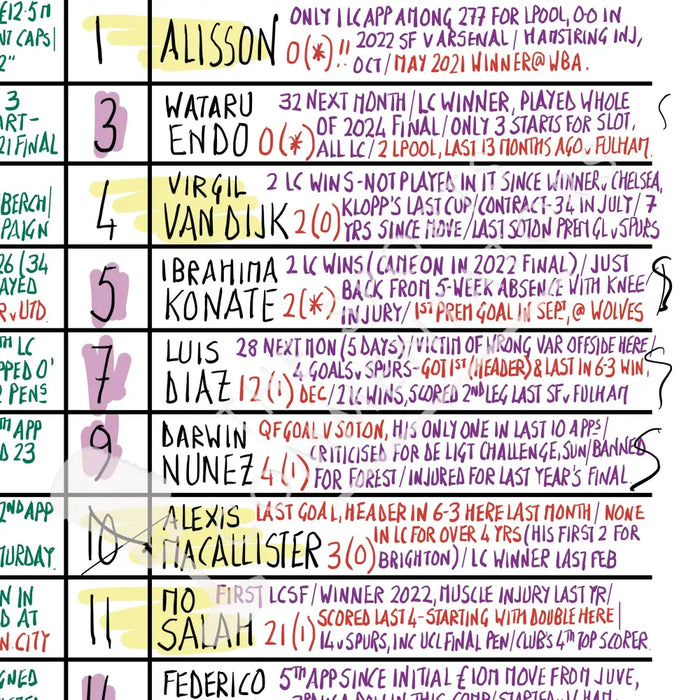 £12.5M
NT CAPS|
2"
1
ALISSON
0(*)!!
ONLY 1 LC APP AMONG 277 FOR LPOOL, 0-0 IN
2022 SF V ARSENAL / HAMSTRING INJ,
OCT / MAY 2021 WINNER @ WBA.
3
ART-
21 FINAL
3
WATARU
ENDO 0(*)
32 NEXT MONTH / LC WINNER, PLAYED WHOLE
OF 2024 FINAL / ONLY 3 STARTS FOR SLOT,
ALL LC / 2 LPOOL, LAST 13 MONTHS AGO v FULHAM.
BERCH|
PAIGN
4
VIRGIL
VAN DIJK 2(0)
2 LC WINS - NOT PLAYED IN IT SINCE WINNER v CHELSEA,
KLOPP'S LAST CUP / CONTRACT - 34 IN JULY / 7
YRS SINCE MOVE / LAST SOTON PREM GL v SPURS
26 (34
AYED
R v UTD.
5
IBRAHIMA
KONATE 2(*)
2 LC WINS (CAME ON IN 2022 FINAL) / JUST
BACK FROM 5-WEEK ABSENCE WITH KNEE
INJURY / 1ST PREM GOAL IN SEPT, @ WOLVES
TH LC
PPED O'
2 PENS
7
LUIS
DIAZ 12(1)
28 NEXT MON (5 DAYS) / VICTIM OF WRONG VAR OFFSIDE HERE /
4 GOALS v SPURS - GOT 1ST (HEADER) & LAST IN 6-3 WIN,
DEC / 2 LC WINS, SCORED 2ND LEG LAST SF v FULHAM
TH APP
D 23
9
DARWIN
NUNEZ 4(1)
QF GOAL V SOTON, HIS ONLY ONE IN LAST 10 APPS /
CRITICISED FOR DE LIGT CHALLENGE, SUN / BANNED
FOR FOREST / INJURED FOR LAST YEAR'S FINAL.
2ND APP
TURDAY.
10
ALEXIS
MACALLISTER 3(0)
LAST GOAL, HEADER IN 6-3 HERE LAST MONTH / NONE
IN LC FOR OVER 4 YRS (HIS FIRST 2 FOR
BRIGHTON) / LC WINNER LAST FEB
N IN
D AT
N CITY
11
MO
SALAH 21(1)
FIRST LCSF / WINNER 2022, MUSCLE INJURY LAST YR /
SCORED LAST 4 - STARTING WITH DOUBLE HERE |
14 v SPURS, INC UCL FINAL PEN / CLUB'S 4TH TOP SCORER.
GNED
FEDERICO
5TH APP SINCE INITIAL £10M MOVE FROM JUVE,